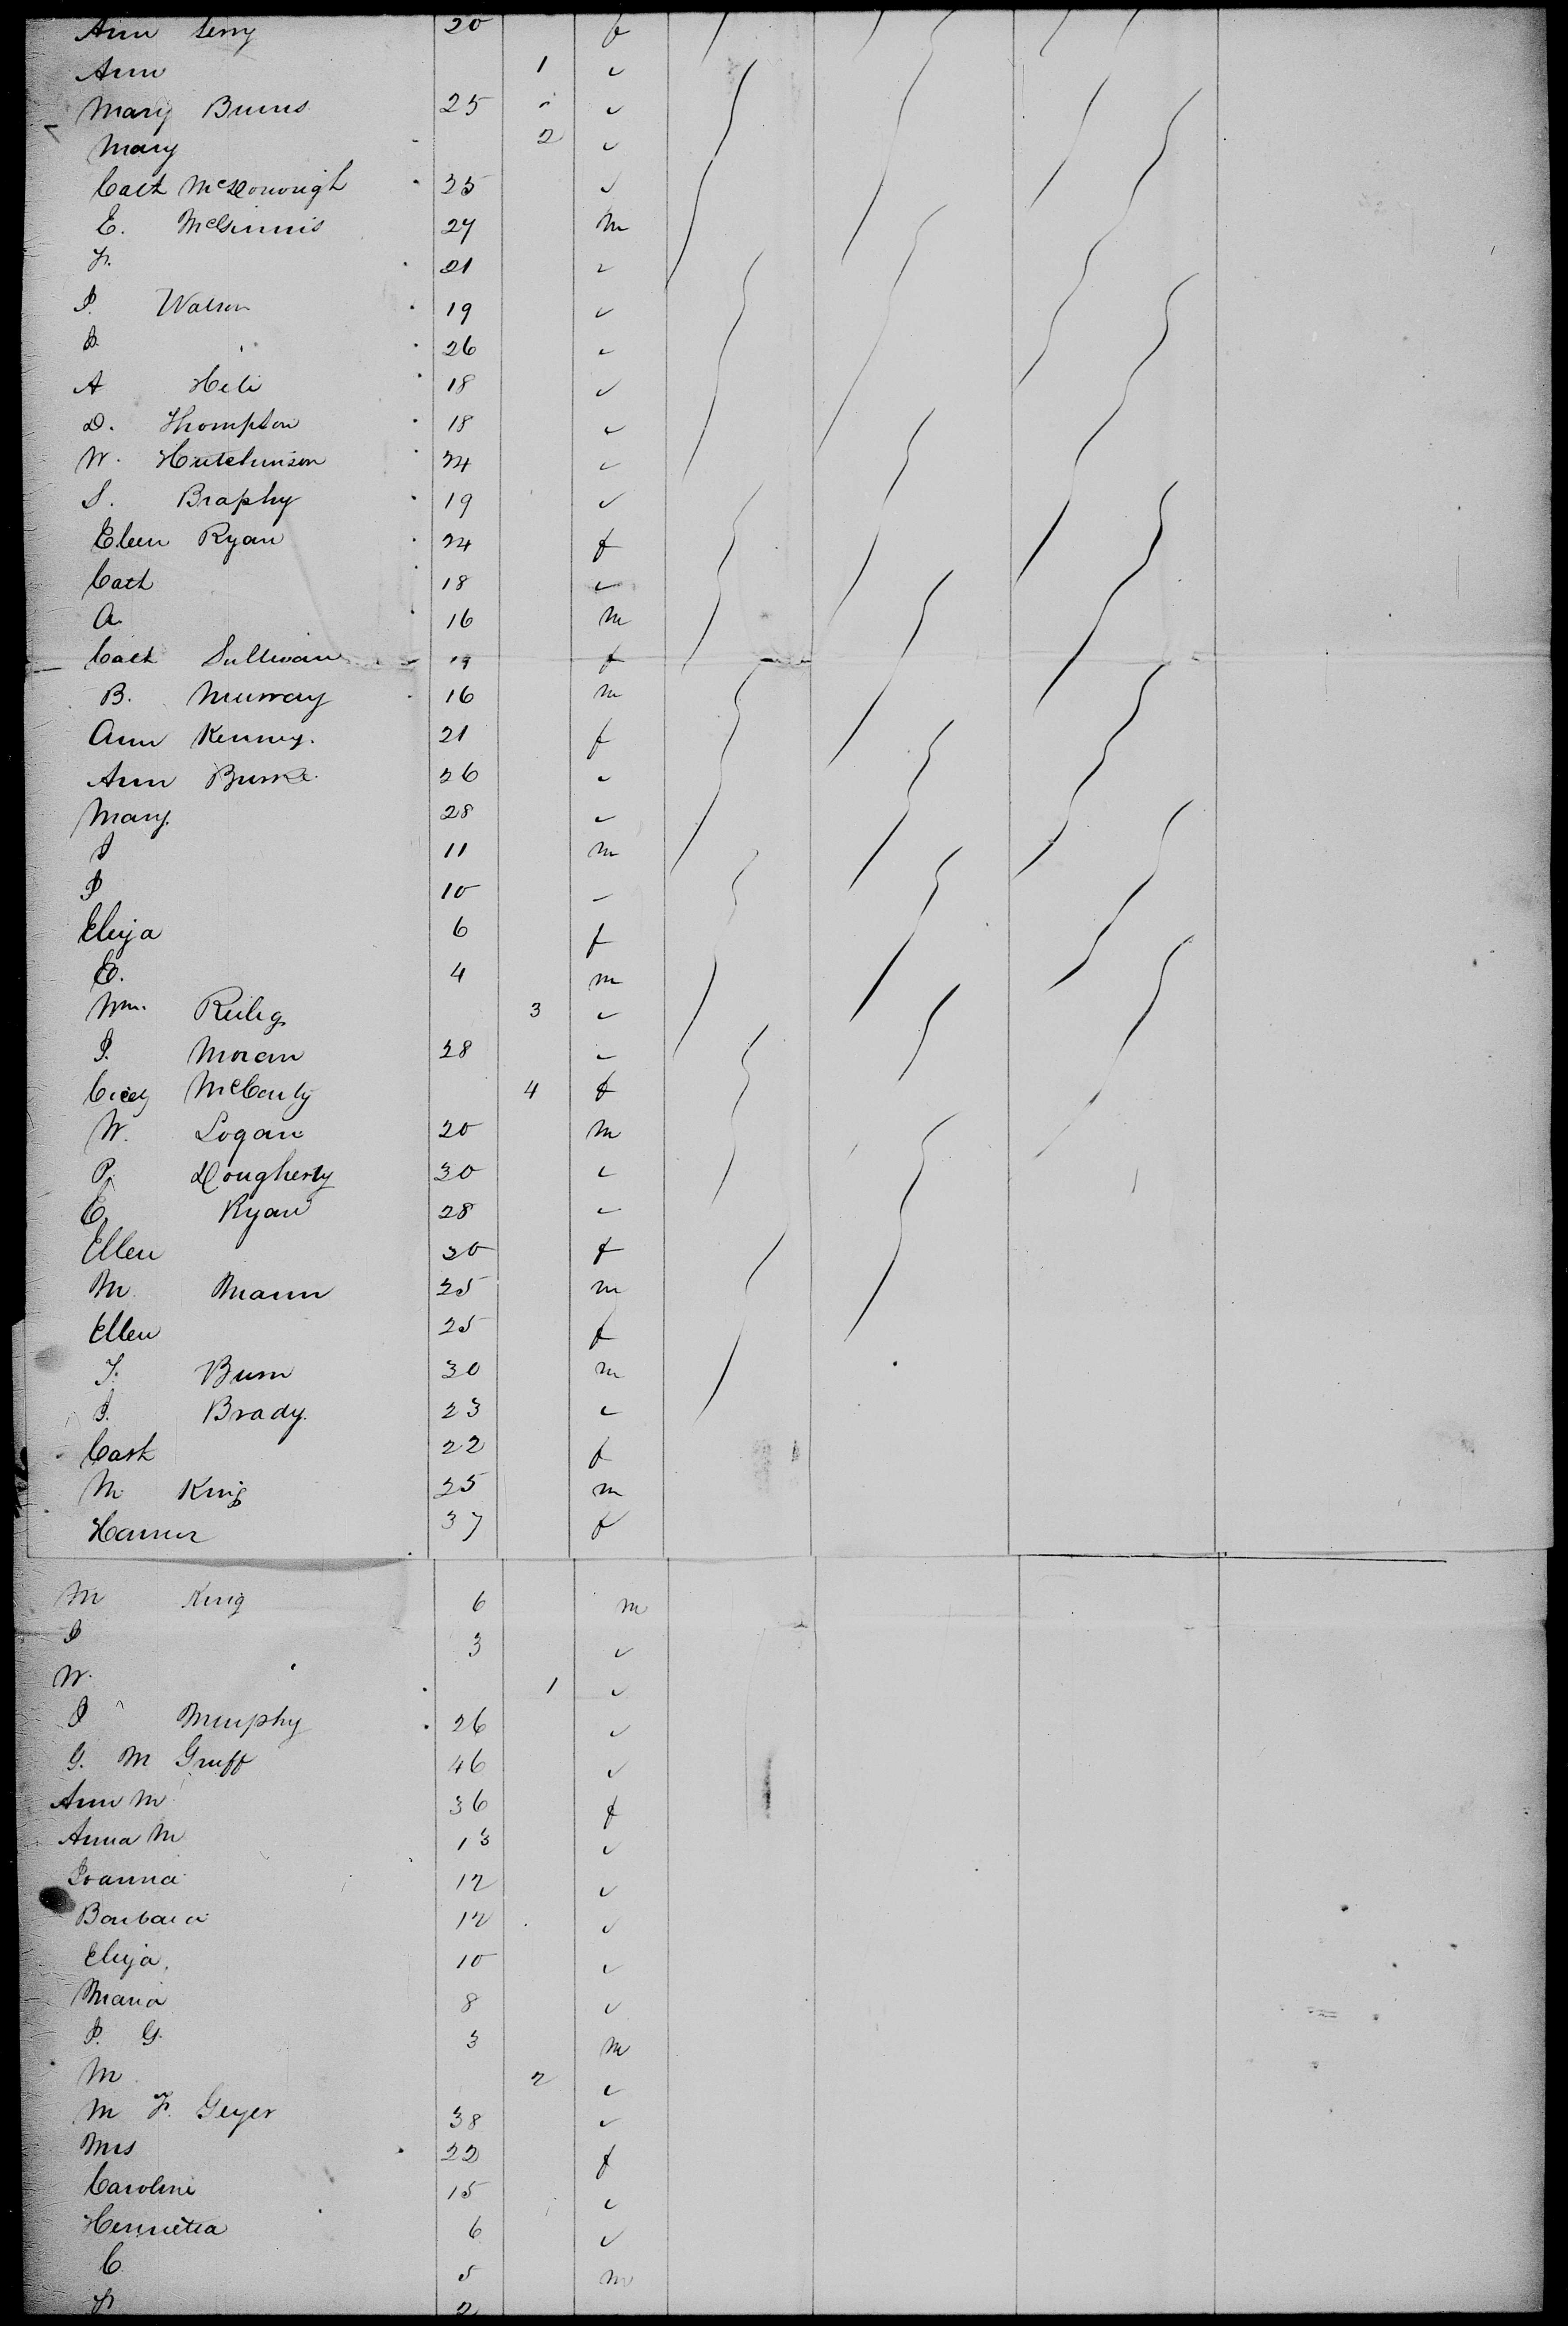 Ann 20 f
Ann 1 "
Mary Burns 25 "
Mary 2 "
Cath McDonough 25 "
E. McGinnis 27 m
F. 21 "
P. Watson 19 "
26 "
A 18 "
D. Thompson 18 "
W. Hutchinson 24 "
S. Braphy 19 "
Elen Ryan 24 f
Cath 18 "
A. 16 m
Cath Sullivan 19 f
B. Murray 16 m
Ann Kenney. 21 f
Ann Burke. 26 "
Mary. 28 "
J 11 m
P 10 "
Eliza 6 f
E. 4 m
Wm. Reiley 3 "
J. Moran 28 "
Cicely McCarty 4 f
W. Logan 20 m
P. Dougherty 30 "
C. Ryan 28 "
Ellen 30 f
M Mann 25 m
Ellen 25 f
T. Burn 30 m
J. Brady. 23 "
Cath 22 f
M King 25 m
37 f
M King 6 m
J 3 "
W. 1 "
J Murphy 26 "
G. M Gruff 46 "
Ann M 36 f
Anna M 13 "
Joanna 12 "
Barbara 12 "
Eliza. 10 "
Maria 8 "
J. G. 3 m
M 2 "
M F. Geyer 38 "
Mrs 22 f
Caroline 15 "
Hennetta 6 "
C 5 m
F 2